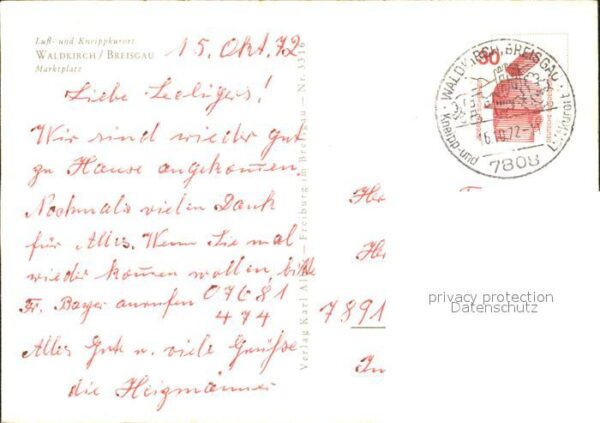 Luft- und Kneippkurort
WALDKIRCH / BREISGAU
Marktplatz
15. Okt. 72
Liebe Seeligers!
Wir sind wieder gut
zu Hause angekommen.
Nochmals vielen Dank
für Alles. Wenn Sie mal
wieder kommen wollen, bitte
Fr. Bayer anrufen 07681
474
Alles Gute u. viele Grüße
die
Verlag Karl — Freiburg im Breisgau — Nr. 3316
WALDKIRCH, BREISGAU
Kneipp-und
Luftkurort
16.10.72
7808
30
DEUTSCHE BUNDESPOST
Her
Her
7891
In
privacy protection
Datenschutz